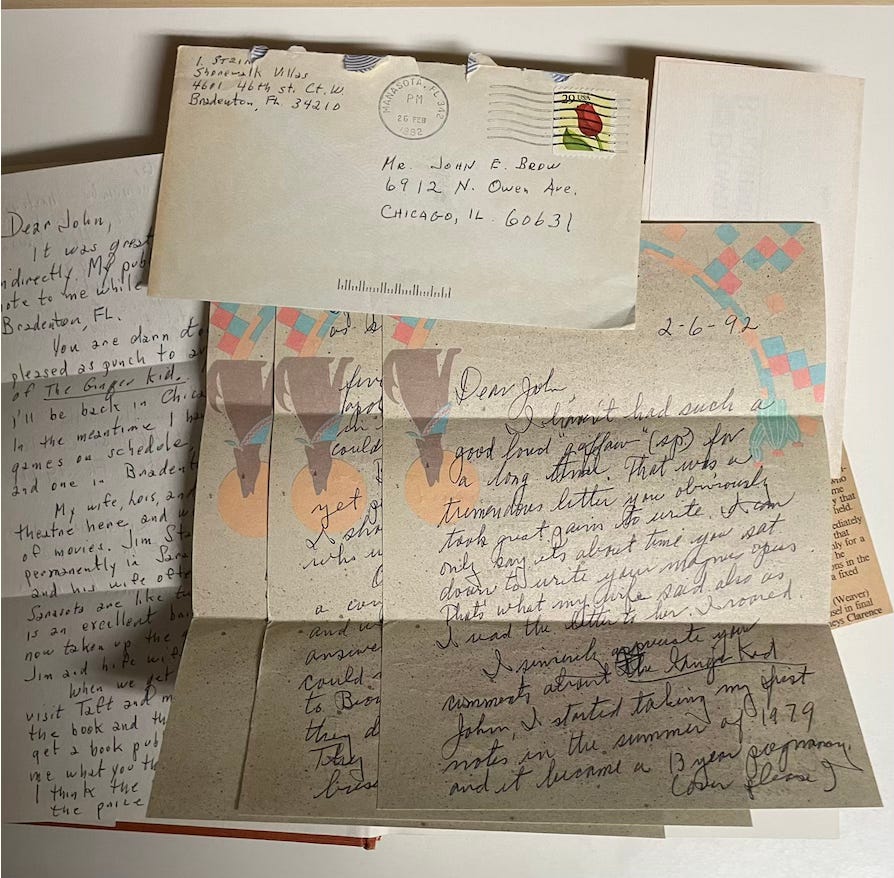 I. STEIN
Shorewalk Villas
4601 46th St. Ct. W.
Bradenton, Fh. 34210
MANASOTA, FL 342
PM
26 FEB
1992
29 USA
MR. JOHN E. BROW
6912 N. Owen Ave.
CHICAGO, IL. 60631
Dear John,
It was great
indirectly. My pub
note to me while
Bradenton, FL.
You are darn
pleased as punch to
of The Ginger Kid.
I'll be back in Chica
In the meantime I ha
games on schedule
and one in Bradent
My wife, Lois, and
theatre here, and w
of movies. Jim Sta
permanently in Sara
and his wife ofte
Sarasota are like
is an excellent
now taken up the
Jim and his wif
When we get
visit Taft and m
the book and th
get a book pub
me what you th
I think the
the price
as s
five
apol
in
could
yet
I sho
who w
a con
and w
answe
could
to Bro
they d
They
2-6-92
Dear John
I haven't had such a
good loud "gaffaw" (sp) for
a long time. That was a
tremendous letter you obviously
took great pains to write. I can
only say it's about time you sat
down to write your magnus opus.
That's what my wife said also as
I read the letter to her. I roared.
I sincerely appreciate your
comments about The Ginger Kid
John, I started taking my first
notes in the summer of 1979
and it became a 13 year pregnancy.
(over please)
who
me
y that
held.
ediately
ly for a
he
ons in the
a fixed
(Weaver)
sed in final
neys Clarence